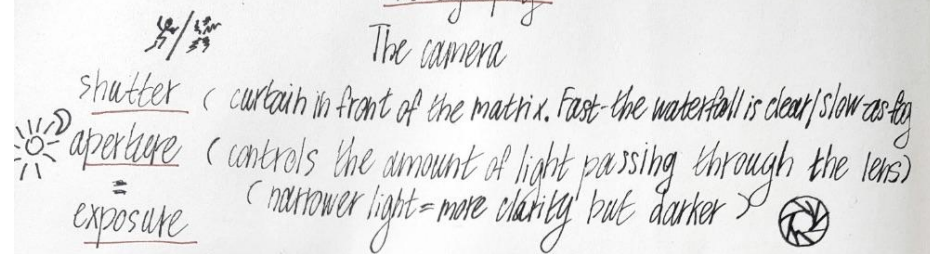 The camera
shutter (curtain in front of the matrix. Fast-the waterfall is clear/slow-as-fog
aperture (controls the amount of light passing through the lens)
= (narrower light = more clarity but darker)
exposure